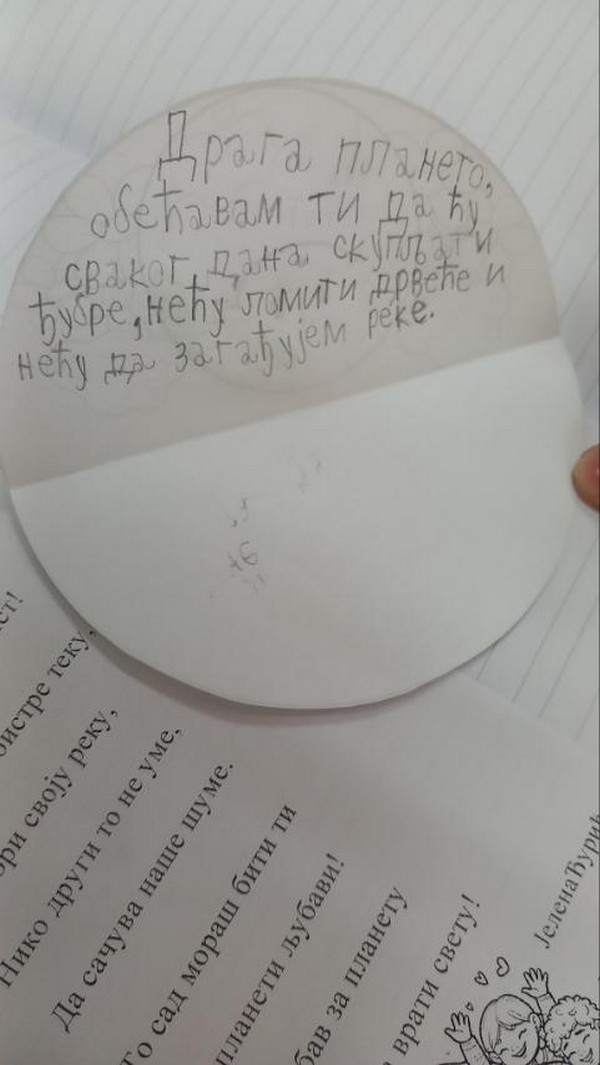 Драга плането,
обећавам ти да ћу
сваког дана скупљати
ђубре, нећу ломити дрвеће и
нећу да загађујем реке.
теку,
ри своју реку,
Нико други то не уме,
Да сачува наше шуме.
То сад мораш бити ти
планети љубави!
за планету
врати свету!
Јелена Ђурић